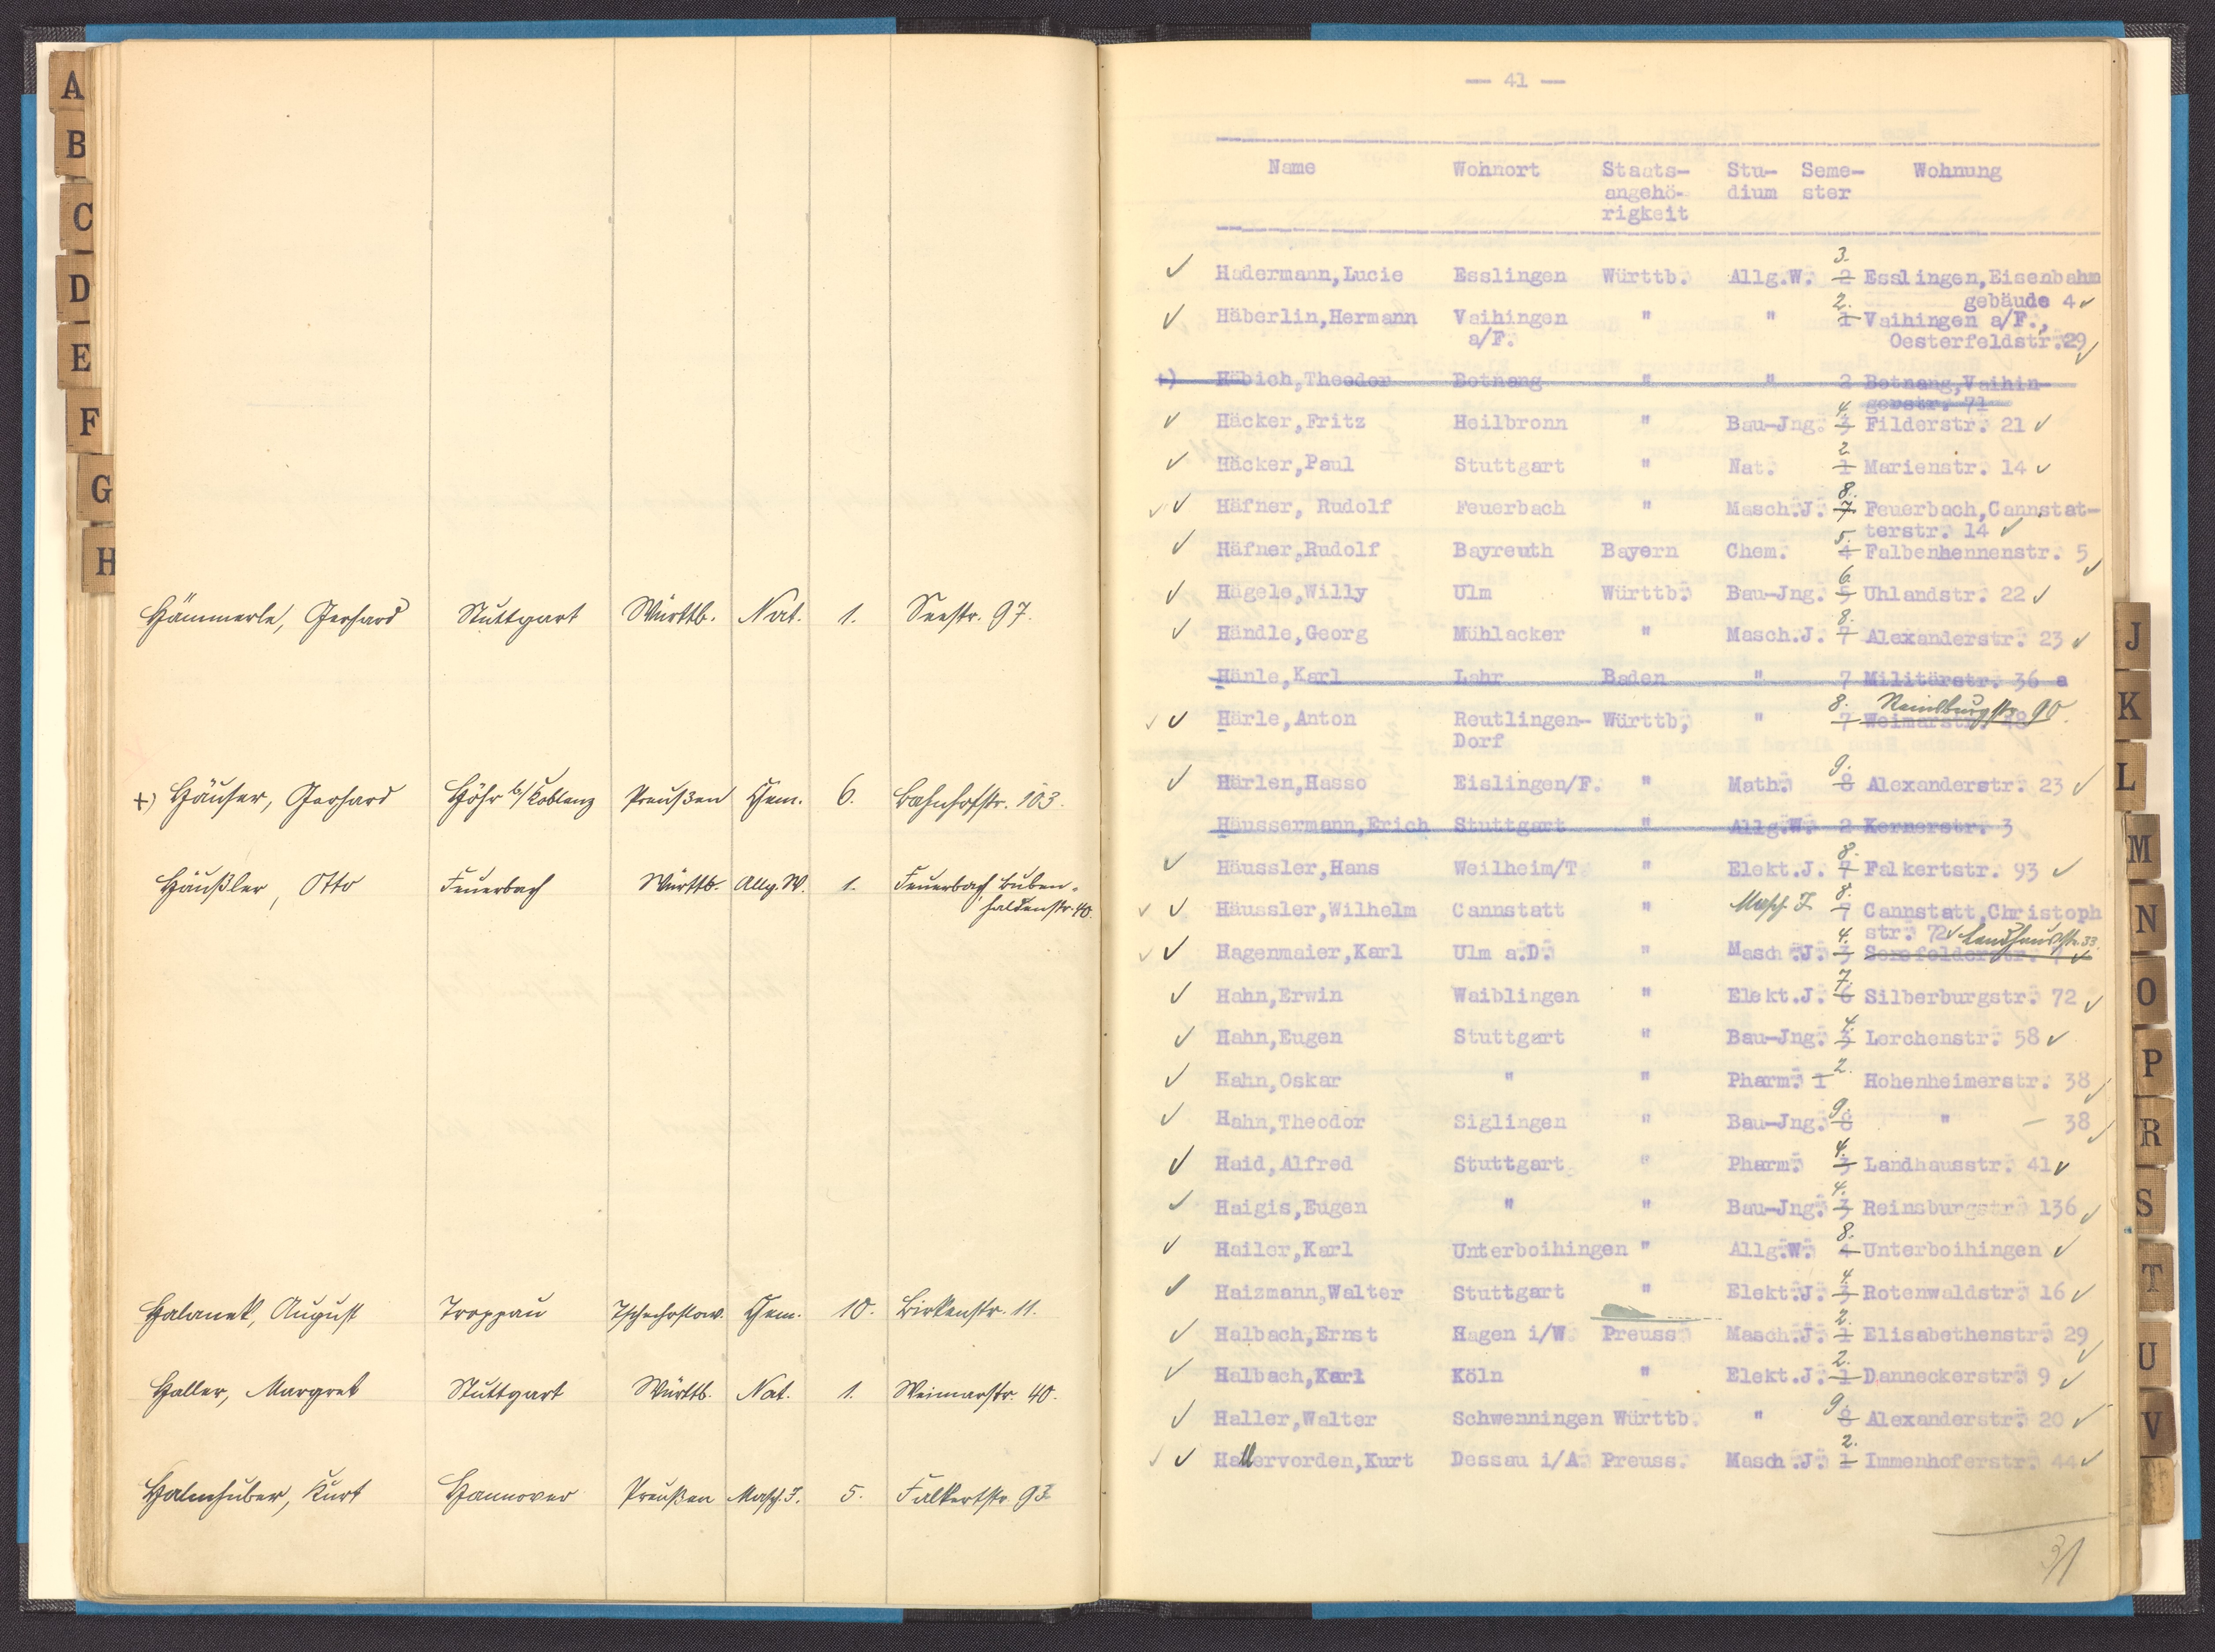 A
B
C
D
E
F
G
H
Hämmerle, Gerhard Stuttgart Württb. Nat. 1. Seestr. 97.
+) Häuser, Gerhard Höhr b/Koblenz Preußen Chem. 6. Bahnhofstr. 103.
Häußler, Otto Feuerbach Württb. Allg. W. 1. Feuerbach, Buben-
haldenstr. 40.
Halanek, August Troppau Tschechoslow. Chem. 10. Birkenstr. 11.
Haller, Margret Stuttgart Württb. Nat. 1. Weimarstr. 40.
Halmhuber, Kurt Hannover Preußen Masch. I. 5. Falkertstr. 93
— 41 —
Name Wohnort Staats- Stu- Seme- Wohnung
angehö- dium ster
rigkeit
3.
✓ Hadermann,Lucie Esslingen Württb. Allg.W. 2 Esslingen,Eisenbahn
2. gebäude 4 ✓
✓ Häberlin,Hermann Vaihingen " " 1 Vaihingen a/F.,
a/F. Oesterfeldstr.29 ✓
+) Häbich,Theodor Botnang " " 2 Botnang,Vaihin-
4. gerstr. 71
✓ Häcker,Fritz Heilbronn " Bau-Jng. 3 Filderstr. 21 ✓
2
✓ Häcker,Paul Stuttgart " Nat. 1 Marienstr. 14 ✓
8.
✓ ✓ Häfner, Rudolf Feuerbach " Masch.J. 7 Feuerbach,Cannstat-
5. terstr. 14 ✓
✓ Häfner,Rudolf Bayreuth Bayern Chem. 4 Falbenhennenstr. 5 ✓
6.
✓ Hägele,Willy Ulm Württb. Bau-Jng. 5 Uhlandstr. 22 ✓
8.
✓ Händle,Georg Mühlacker " Masch.J. 7 Alexanderstr. 23 ✓
Hänle,Karl Lahr Baden " 7 Militärstr. 36 a
8. Reinsburgstr. 90.
✓ ✓ Härle,Anton Reutlingen- Württb, " 7 Weimarstr. 48
Dorf
9.
✓ Härlen,Hasso Eislingen/F. " Math. 8 Alexanderstr. 23 ✓
Häussermann,Erich Stuttgart " Allg.W. 2 Kernerstr. 3
8.
✓ Häussler,Hans Weilheim/T " Elekt.J. 7 Falkertstr. 93 ✓
8.
✓ ✓ Häussler,Wilhelm Cannstatt " Masch. I. 7 Cannstatt,Christoph
4. str. 72 ✓ Landhausstr. 33.
✓ ✓ Hagenmaier,Karl Ulm a.D. " Masch.J. 3
7.
✓ Hahn,Erwin Waiblingen " Elekt.J. 6 Silberburgstr. 72 ✓
4.
✓ Hahn,Eugen Stuttgart " Bau-Jng. 3 Lerchenstr. 58 ✓
2.
✓ Hahn,Oskar " " Pharm. 1 Hohenheimerstr. 38 ✓
9.
✓ Hahn,Theodor Siglingen " Bau-Jng. 8 " — 38 ✓
4.
✓ Haid,Alfred Stuttgart " Pharm. 3 Landhausstr. 41 ✓
4.
✓ Haigis,Eugen " " Bau-Jng. 3 Reinsburgstr. 136 ✓
8.
✓ Hailer,Karl Unterboihingen " Allg.W. 4 Unterboihingen ✓
4.
✓ Haizmann,Walter Stuttgart " Elekt.J. 3 Rotenwaldstr. 16 ✓
2.
✓ Halbach,Ernst Hagen i/W. Preuss. Masch.J. 1 Elisabethenstr. 29 ✓
2.
✓ Halbach,Karl Köln " Elekt.J. 1 Danneckerstr. 9 ✓
9.
✓ Haller,Walter Schwenningen Württb. " 8 Alexanderstr. 20 ✓
2.
✓ ✓ Hallervorden,Kurt Dessau i/A. Preuss. Masch.J. 1 Immenhoferstr. 44 ✓
31
J
K
L
M
N
O
P
R
S
T
U
V